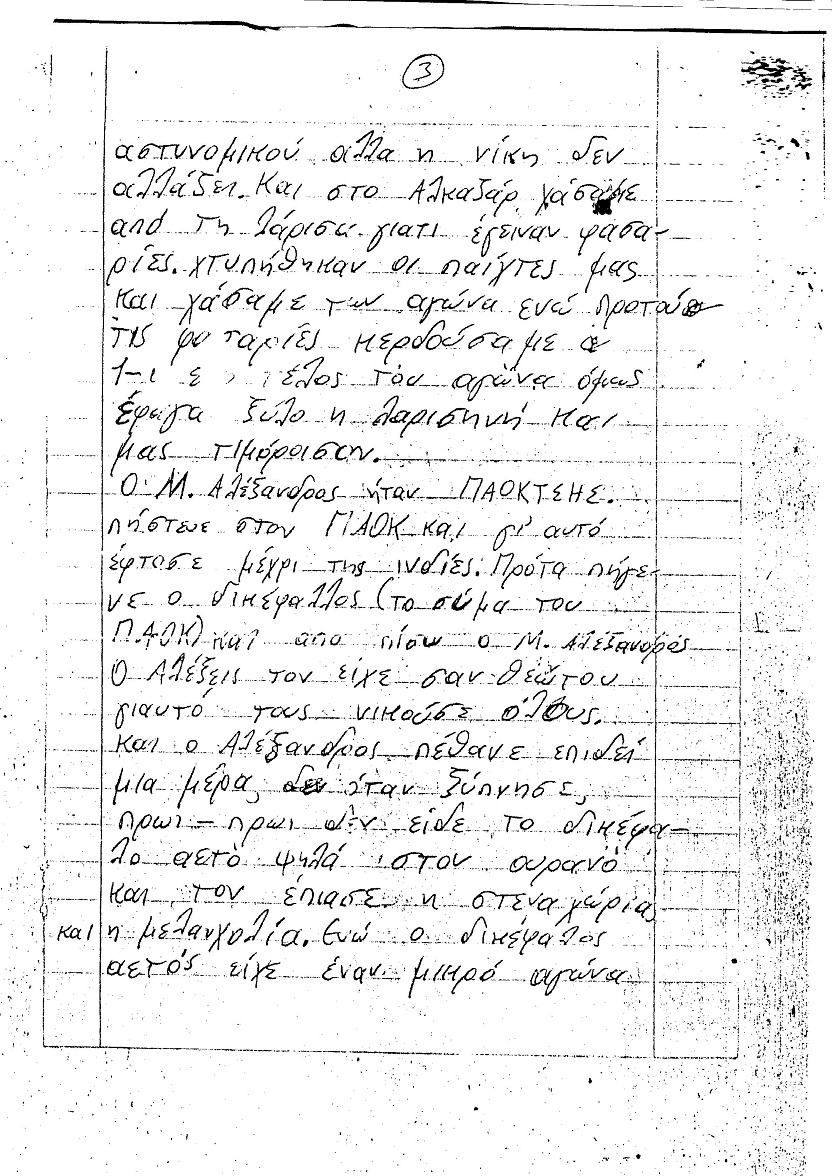 3
αστυνομικού αλλα η νίκη δεν
αλλάζει. Και στο Αλκαζάρ χάσαμε
από τη λάρισα γιατι έγειναν φασα-
ρίες. χτυπήθηκαν οι παίχτες μας
και χάσαμε των αγώνα ενώ προτού
τις φα ταρίες κερδούσαμε
1-1 τέλος του αγώνα όμως
έφαγα ξύλο η λαρισηνή και
μας τιμόρισαν.
Ο Μ. Αλέξανδρος ήταν ΠΑΟΚΤΣΗΣ.
πήστευε στον ΠΑΟΚ και γι' αυτό
έφτασε μέχρι της ινδίες. Πρότα πήγε-
νε ο δικέφαλλος (το σύμα του
Π.ΑΟΚ) και απο πίσω ο Μ. Αλέξανδρος
Ο Αλέξεις τον είχε σαν θεώτου
γιαυτό τους νικούσε όλους.
Και ο Αλέξανδρος πέθανε επιδεί
μια μέρα, όταν ξύπνησε,
πρωι - πρωι δεν είδε το δικέφα-
λο αετό ψηλά στον ουρανό
και τον έπιασε η στεναχώρια,
και η μελανχολία. Ενώ ο δικέφαλος
αετός είχε έναν μικρό αγώνα